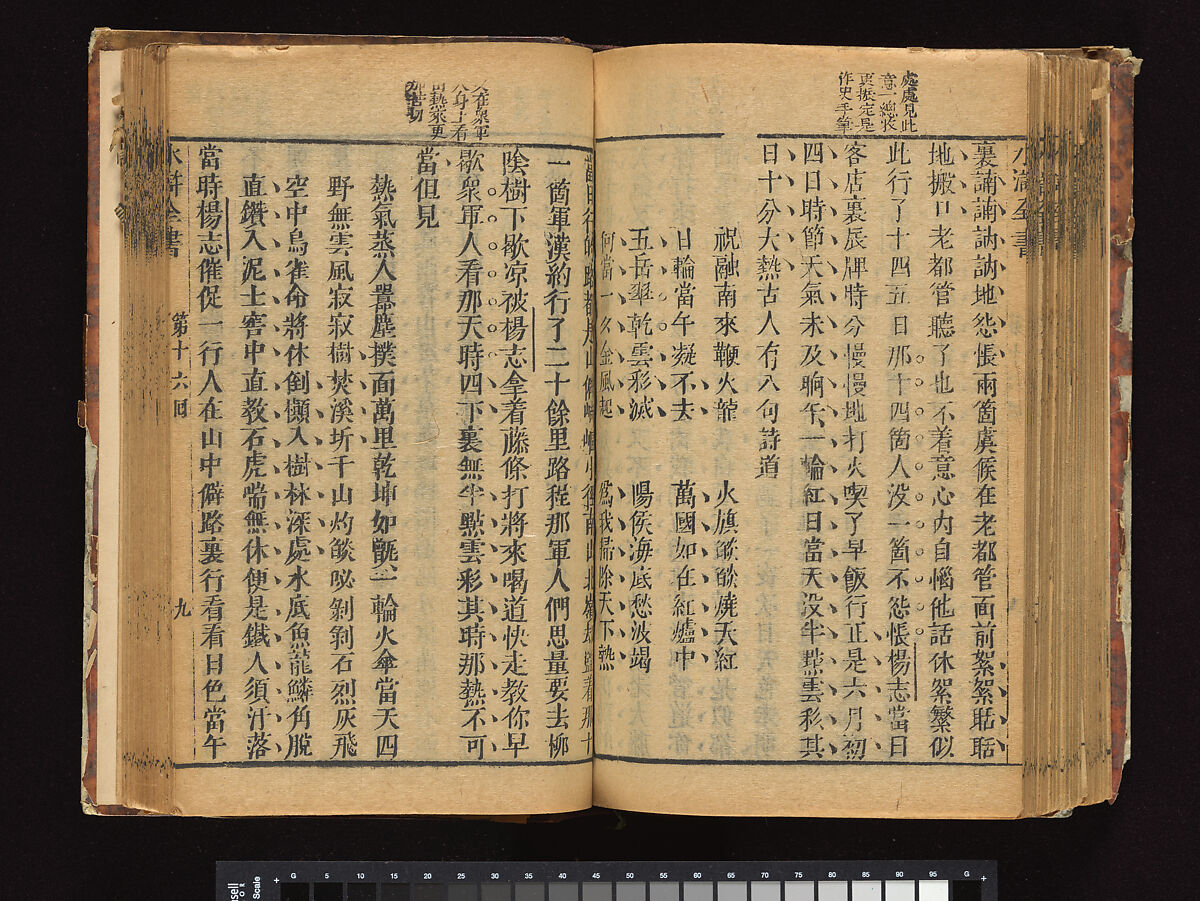 處處見此
意一總收
更振定是
作史手筆
裏誦誦訥訥地怨悵兩箇虞候在老都管面前絮絮聒聒
地搬口老都管聽了也不着意心內自惱他話休絮繁似
此行了十四五日那十四箇人沒一箇不怨悵楊志當日
客店裏辰牌時分慢慢地打火喫了早飯行正是六月初
四日時節天氣未及晌午一輪紅日當天沒半點雲彩其
日十分大熱古人有八句詩道
祝融南來鞭火龍 火旗燄燄燒天紅
日輪當午凝不去 萬國如在紅爐中
五岳翠乾雲彩滅 陽侯海底愁波竭
何當一夕金風起 為我掃除天下熱
當日行的路都是山僻崎嶇小徑南山北嶺却監着那十
一箇軍漢約行了二十餘里路程那軍人們思量要去柳
陰樹下歇凉被楊志拿着藤條打將來喝道快走教你早
歇衆軍人看那天時四下裏無半點雲彩其時那熱不可
當但見
熱氣蒸人囂塵撲面萬里乾坤如甑一輪火傘當天四
野無雲風寂寂樹焚溪坼千山灼燄必剝剝石烈灰飛
空中鳥雀命將休倒攧入樹林深處水底魚龍鱗角脫
直鑽入泥土窖中直教石虎喘無休便是鐵人須汗落
當時楊志催促一行人在山中僻路裏行看看日色當午
水滸全書
第十六回
九